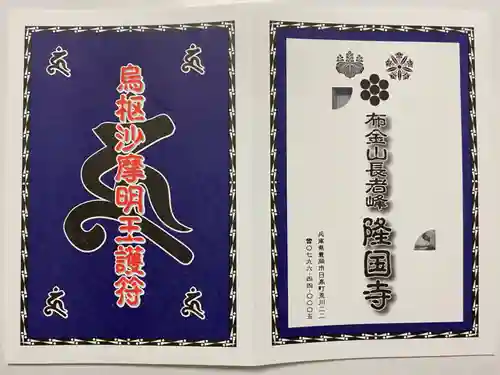 烏枢沙摩明王護符
布金山長者峰
隆国寺
兵庫県豊岡市日高町荒川二二
☎〇七九六・四四・〇〇〇五